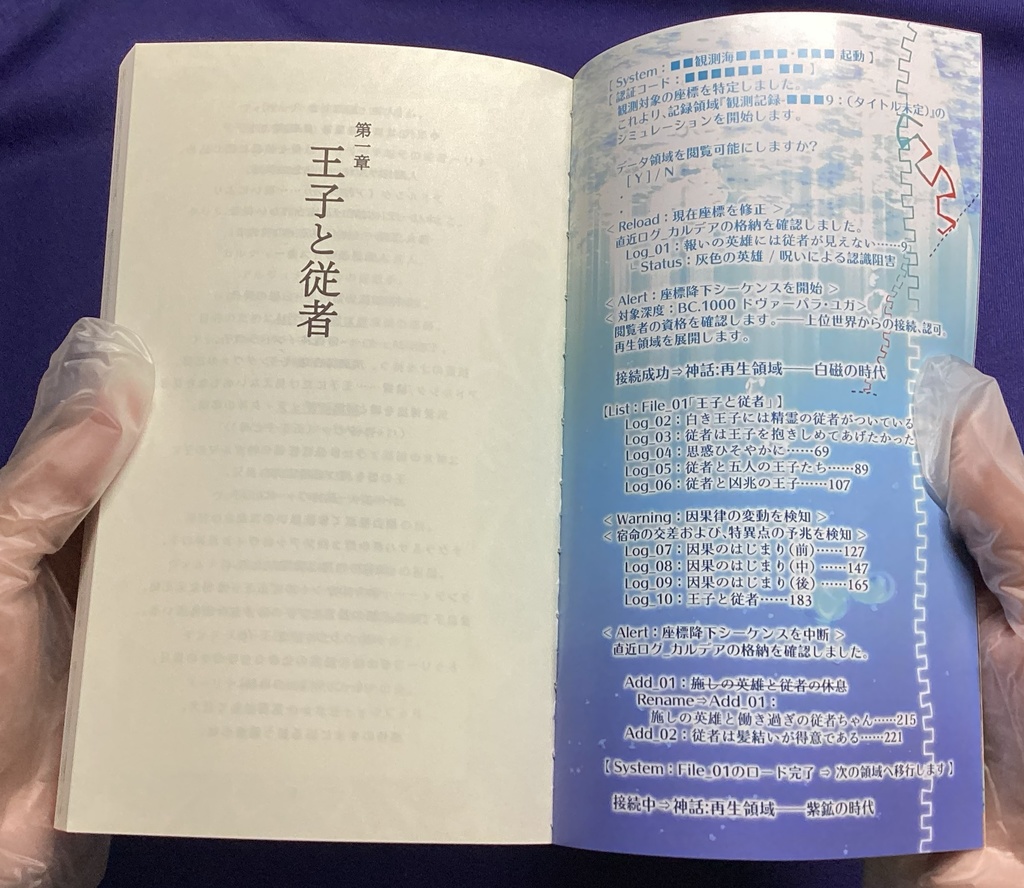 第一章
王子と従者
[ System：■■観測海■■■■-■■■ 起動 ]
[ 認証コード：■■■■■■ ■■ ]
観測対象の座標を特定しました。
これより、記録領域『観測記録-■■■9：（タイトル未定）』の
シミュレーションを開始します。
データ領域を閲覧可能にしますか？
[ Y ] / N
.
.
< Reload：現在座標を修正 >
直近ログ_カルデアの格納を確認しました。
Log_01：報いの英雄には従者が見えない……9
└ Status：灰色の英雄 / 呪いによる認識阻害
< Alert：座標降下シーケンスを開始 >
< 対象深度：BC.1000 ドヴァーパラ・ユガ >
閲覧者の資格を確認します。――上位世界からの接続、認可。
再生領域を展開します。
接続成功⇒神話:再生領域――白磁の時代
[List：File_01「王子と従者」]
Log_02：白き王子には精霊の従者がついている
Log_03：従者は王子を抱きしめてあげたかった
Log_04：思惑ひそやかに……69
Log_05：従者と五人の王子たち……89
Log_06：従者と凶兆の王子……107
< Warning：因果律の変動を検知 >
< 宿命の交差および、特異点の予兆を検知 >
Log_07：因果のはじまり（前）……127
Log_08：因果のはじまり（中）……147
Log_09：因果のはじまり（後）……165
Log_10：王子と従者……183
< Alert：座標降下シーケンスを中断 >
直近ログ_カルデアの格納を確認しました。
Add_01：施しの英雄と従者の休息
Rename⇒Add_01：
施しの英雄と働き過ぎの従者ちゃん……215
Add_02：従者は髪結いが得意である……221
[ System：File_01のロード完了 ⇒ 次の領域へ移行します ]
接続中⇒神話:再生領域――紫鉱の時代